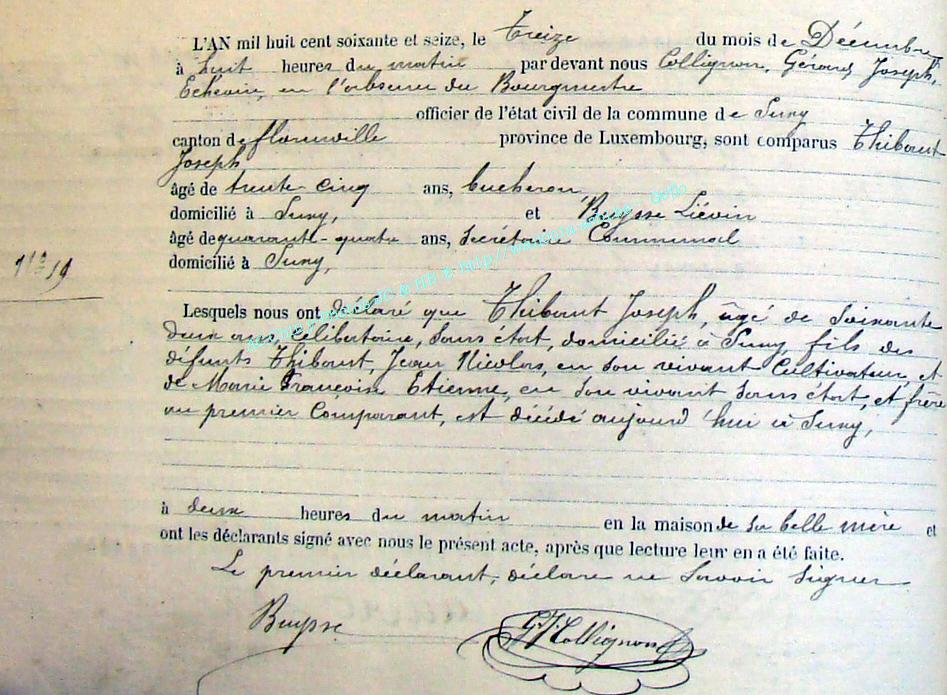 L'AN mil huit cent soixante et seize, le Treize du mois de Décembre
à huit heures du matin par devant nous Collignon, Gérard, Joseph,
Echevin, en l'absence du Bourgmestre
officier de l'état civil de la commune de Suny
canton de florenville province de Luxembourg, sont comparus Thibaut
Joseph
âgé de trente cinq ans, bucheron
domicilié à Suny, et Buysse Liévin
âgé de quarante-quatre ans, Secrétaire Communal
domicilié à Suny,
Lesquels nous ont déclaré que Thibaut Joseph, âgé de Soixante
deux ans, Célibataire, Sans état, domicilié à Suny, fils des
défunts Thibaut, Jean Nicolas, en son vivant Cultivateur, et
de Marie Françoise Etienne, en Son vivant Sans état, et frère
au premier Comparant, est décédé aujourd'hui à Suny,
à deux heures du matin en la maison de sa belle mère et
ont les déclarants signé avec nous le présent acte, après que lecture leur en a été faite.
Le premier déclarant, déclare ne Savoir Signer
Buysse GJCollignon